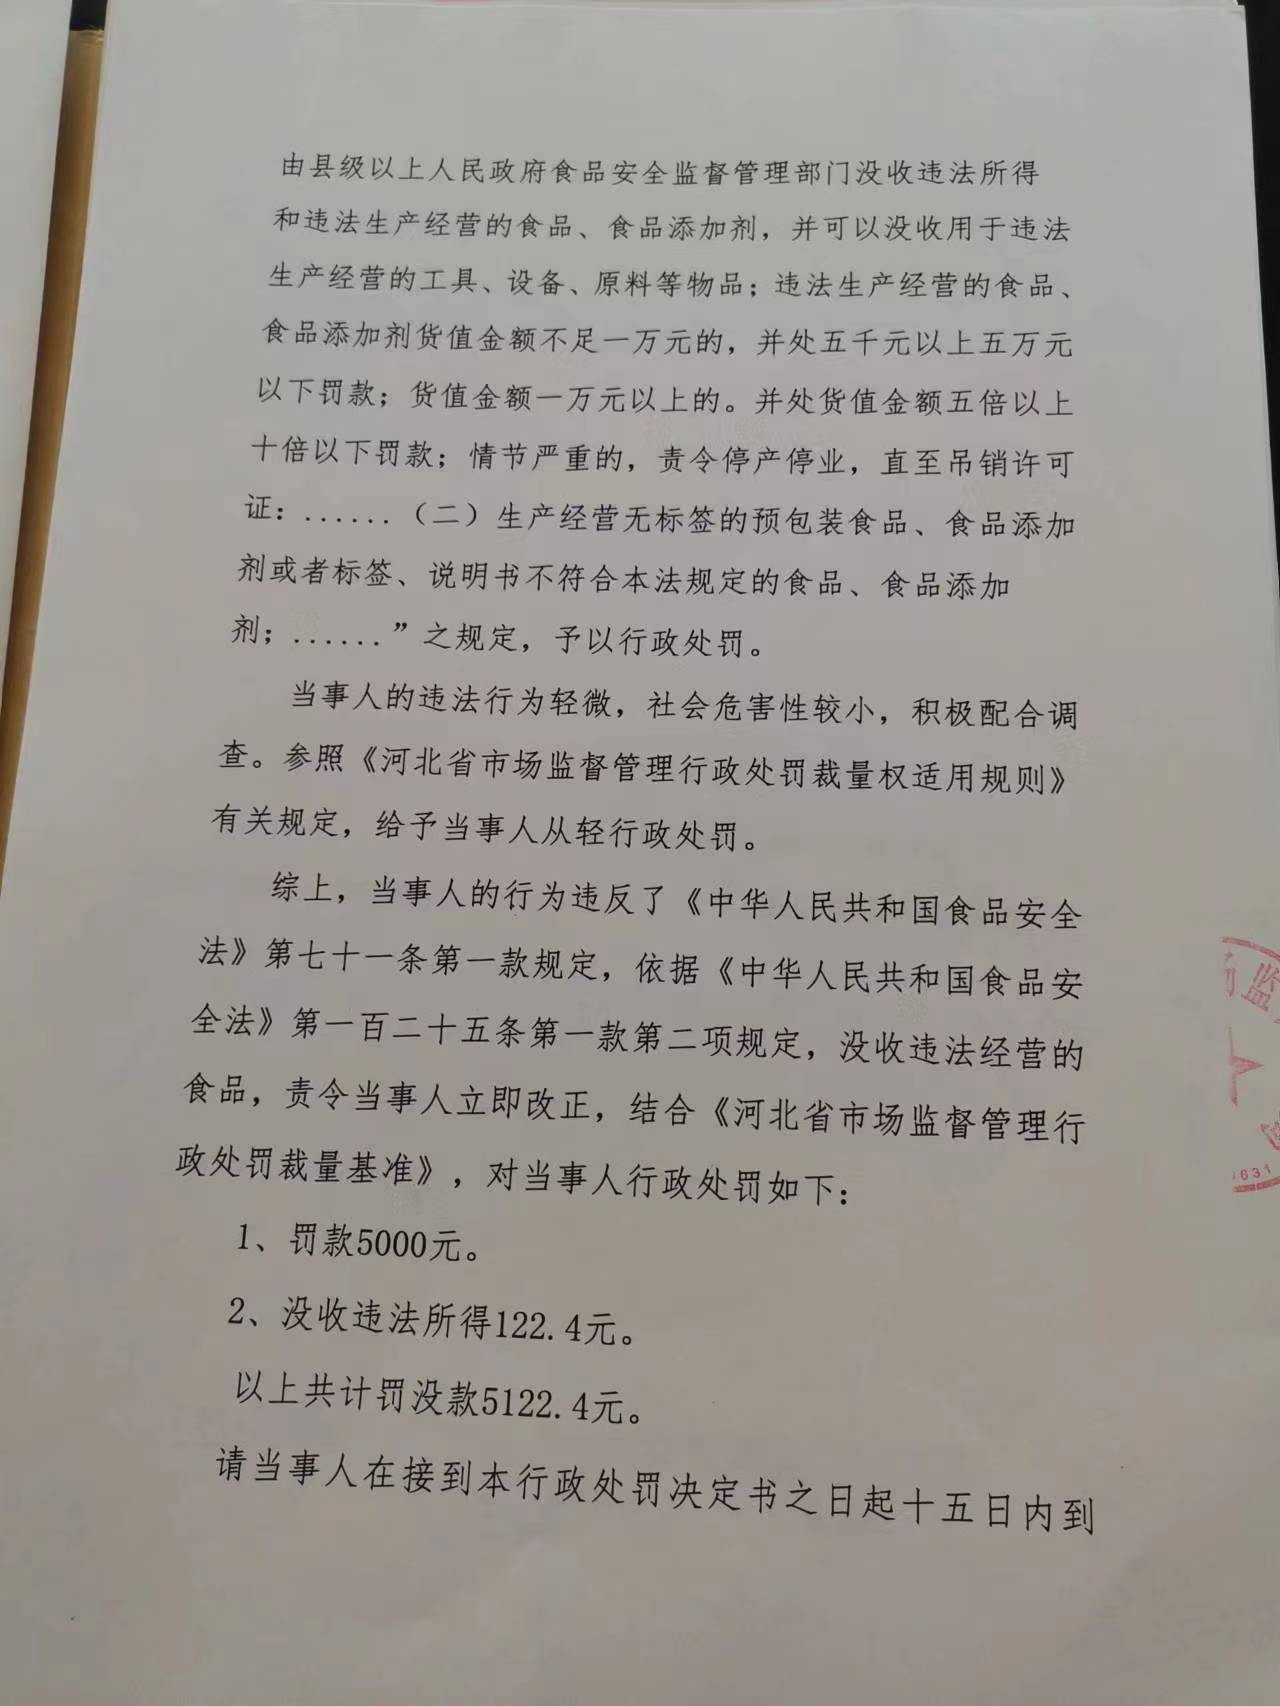 由县级以上人民政府食品安全监督管理部门没收违法所得
和违法生产经营的食品、食品添加剂，并可以没收用于违法
生产经营的工具、设备、原料等物品；违法生产经营的食品、
食品添加剂货值金额不足一万元的，并处五千元以上五万元
以下罚款；货值金额一万元以上的。并处货值金额五倍以上
十倍以下罚款；情节严重的，责令停产停业，直至吊销许可
证：......（二）生产经营无标签的预包装食品、食品添加
剂或者标签、说明书不符合本法规定的食品、食品添加
剂；......”之规定，予以行政处罚。
当事人的违法行为轻微，社会危害性较小，积极配合调
查。参照《河北省市场监督管理行政处罚裁量权适用规则》
有关规定，给予当事人从轻行政处罚。
综上，当事人的行为违反了《中华人民共和国食品安全
法》第七十一条第一款规定，依据《中华人民共和国食品安
全法》第一百二十五条第一款第二项规定，没收违法经营的
食品，责令当事人立即改正，结合《河北省市场监督管理行
政处罚裁量基准》，对当事人行政处罚如下：
1、罚款5000元。
2、没收违法所得122.4元。
以上共计罚没款5122.4元。
请当事人在接到本行政处罚决定书之日起十五日内到
监
1631